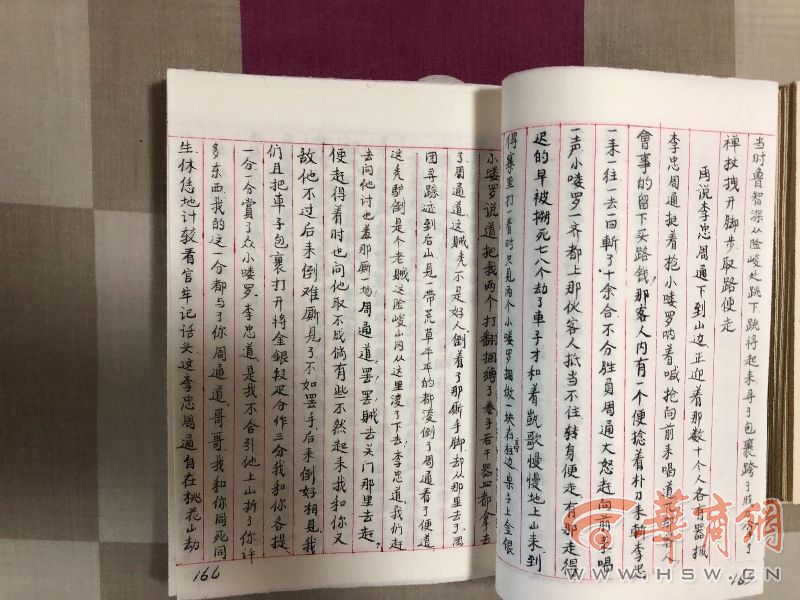 当时鲁智深从险峻处跳下,跳将起来寻了包裹跨了戒刀拿了
禅杖拽开脚步取路便走
再说李忠周通下到山边正迎着那数十个人各有器械
李忠周通挺着枪小喽罗呐着喊抢向前来喝道
會事的留下买路钱,那客人内有一个便捻着朴刀来斩李忠
一来一往一去一回斩了十余合不分胜负周通大怒赶向前来喝
一声小喽罗一齐都上那伙客人抵当不住转身便走有那走得
迟的早被搠死七八个劫了車子才和着凱歌慢慢地上山来到
得寨里打一看时只见两个小喽罗捆做一块在柱边桌子上金银
小喽罗说道把我两个打翻捆缚了卷了若干器皿都拿去
了周通道,这贼秃不是好人倒着了那厮手脚却从那里去了团
团寻踪迹到后山见一带荒草平平的都滚倒了周通看了便道
这秃驴倒是个老贼这险峻山冈从这里滚了下去,李忠道我们赶
去向他讨也羞那厮一场周通道,罢罢贼去关门那里去赶,
便赶得着时也向他取不成倘有些不然起来我和你又
敌他不过后来倒难厮見了不如罢手,后来倒好相見我
们且把車子包裹打开将金銀段疋分作三分我和你各提
一分一分赏了众小喽罗,李忠道,是我不合引他上山折了你许
多东西我的这一分都与了你周通道,哥哥,我和你同死同
生,休恁地计較看官牢记话头这李忠周通自在桃花山劫
166
華商網
WWW.HSW.CN